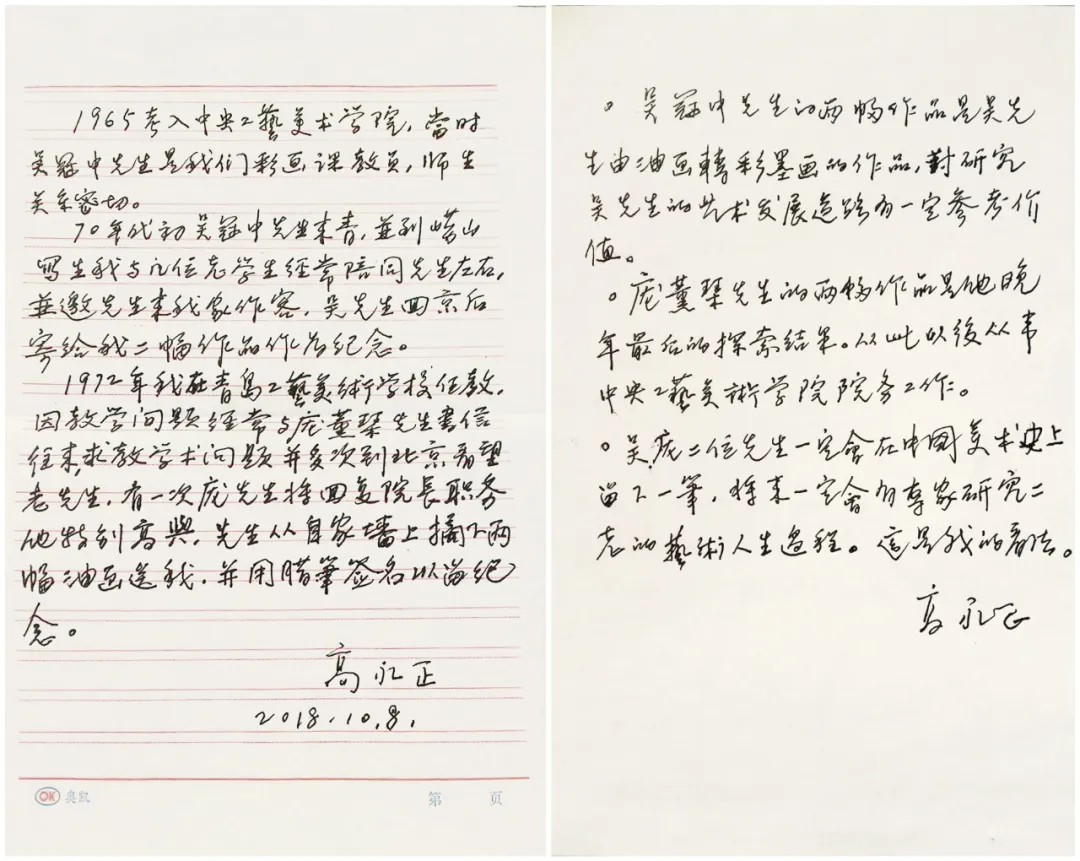 1965考入中央工藝美术学院，當时
吴冠中先生是我们彩画课教员，师生
关系密切。
70年代初吴冠中先生来青，並到崂山
写生我与几位老学生經常陪同先生左右，
並邀先生来我家作客，吴先生回京后
寄给我二幅作品作为纪念。
1972年我在青岛工藝美術学校任教，
因教学问题經常与庞薰琹先生書信
往来，求教学术问题并多次到北京看望
老先生，有一次庞先生将回复院長职务
他特别高興，先生从自家墙上摘下两
幅油画送我，并用腊筆签名以留纪
念。
高永正
2018.10.8.
OK 奥凯
第 页
。吴冠中先生的两幅作品是吴先
生由油画轉彩墨画的作品，對研究
吴先生的艺术发展道路有一定参考价
值。
。庞薰琹先生的两幅作品是他晚
年最后的探索结果。从此以後从事
中央工藝美術学院院务工作。
。吴、庞二位先生一定會在中國美术史上
留下一筆，将来一定會有專家研究二
老的藝術人生过程。這是我的看法。
高永正